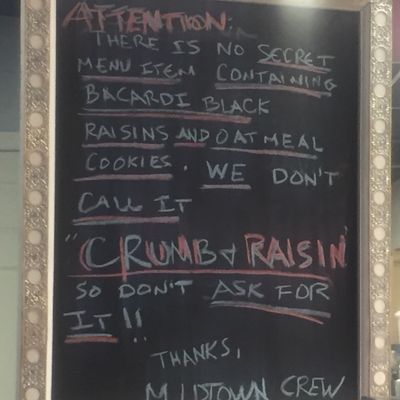 ATTENTION:
THERE IS NO SECRET
MENU ITEM CONTAINING
BACARDI BLACK
RAISINS AND OATMEAL
COOKIES. WE DON'T
CALL IT
"CRUMB & RAISIN"
SO DON'T ASK FOR
IT!!
THANKS,
MIDTOWN CREW